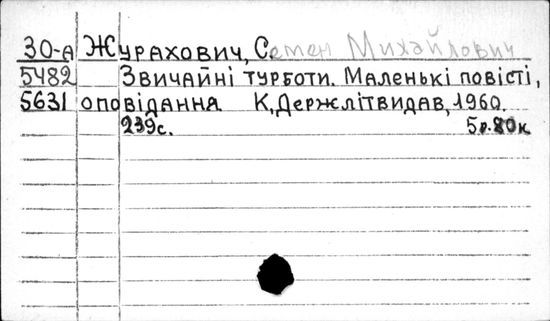 30-А Журахович, Семен Михайлович
5482 Звичайні турботи. Маленькі повісті,
5631 оповідання. К, Держлітвидав, 1960.
239 с. 5р. 80к